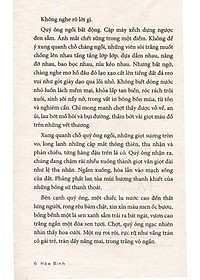 Không nghe rõ lời gì.
Quý ông ngồi bất động. Cặp mày xếch dựng ngược
đen sẫm. Ánh mắt chết sững trong một điểm. Không để
ý xung quanh chỗ chàng ngồi, những viên sỏi trắng muốt
chồng lên nhau tầng tầng lớp lớp, dựa dẫm nhau, nâng
đỡ nhau, bao bọc nhau, níu kéo nhau. Nhưng bất ngờ,
chàng nghe mơ hồ đâu đó lạo xạo cất lên tiếng đất đá reo
vui như gót giày dạo qua lối nhỏ. Không biết dòng nước
nhỏ luồn lách mềm mại, khỏa lấp tan biến, róc rách trôi
xuôi, sinh sôi nảy nở, trong vắt in bóng bốn mùa, từ tốn
và nghiền ngẫm. Cả mong manh chợt thấy được vỗ về, an
ủi, lau bớt mồ hôi và bụi đường, thấm bớt vài giọt máu đỏ
trên những vết thương.
Xung quanh chỗ quý ông ngồi, những giọt sương tròn
vo, long lanh những cặp mắt thông thiên, thu nhận và
phán chiếu, từng hàng đậu trên lá cỏ. Quý ông nhận ra,
chúng đang chậm rãi nhểu xuống thành giọt vắn giọt dài
như lệ tha nhân. Ngấm xuống, hòa lẫn vào mạch sống
của đất. Phảng phất lan tỏa mùi hương thanh khiết của
những bóng sứ thanh thoát.
Bên cạnh quý ông, một chiếc lu nước cao đến thắt
lưng người, rong rêu bám chặt, xin xỉn màu men ốc bươu,
bỗng bềnh một lá sen xanh sẫm trải ra bát ngát, vươn cao
trắng ngần một đóa sen chớm. Chợt, quý ông ngạc nhiên
nhìn thấy hoa cười. Một nụ roi rói, rực rỡ như vầng trán
cô gái trẻ, tràn đầy nắng mai, trong trắng vô ngần.
6 Hòa Bình